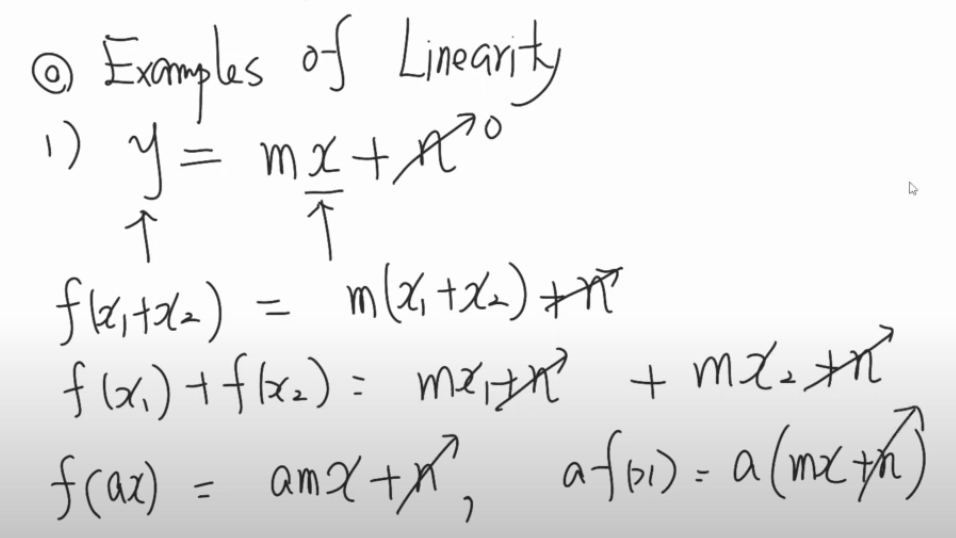 ◎ Examples of Linearity
1) y = mx + n → 0
f(x₁+x₂) = m(x₁+x₂) + n
f(x₁) + f(x₂) = mx₁ + n + mx₂ + n
f(ax) = amx + n, af(x) = a(mx+n)